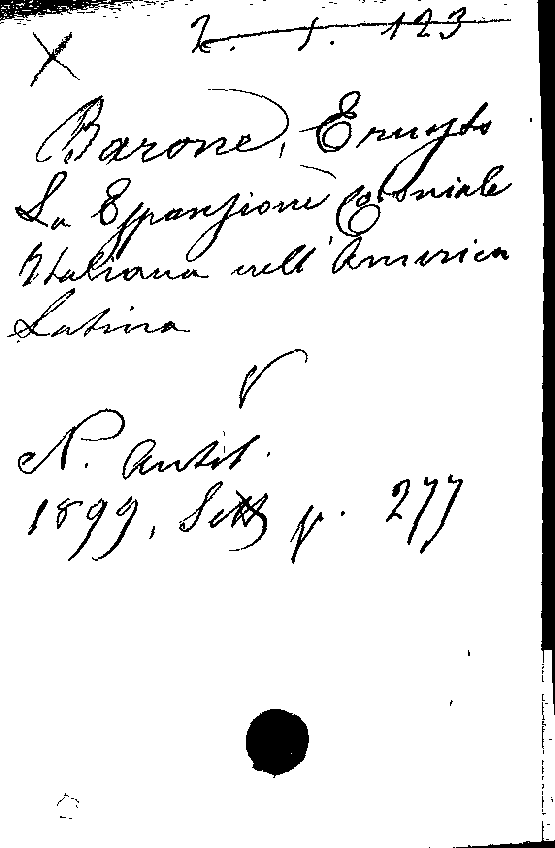 X 2. 1. 123
Barone, Ernesto
La Espansione coloniale
Italiana nell'America
Latina
N. Antol.
1899, Sett p. 277